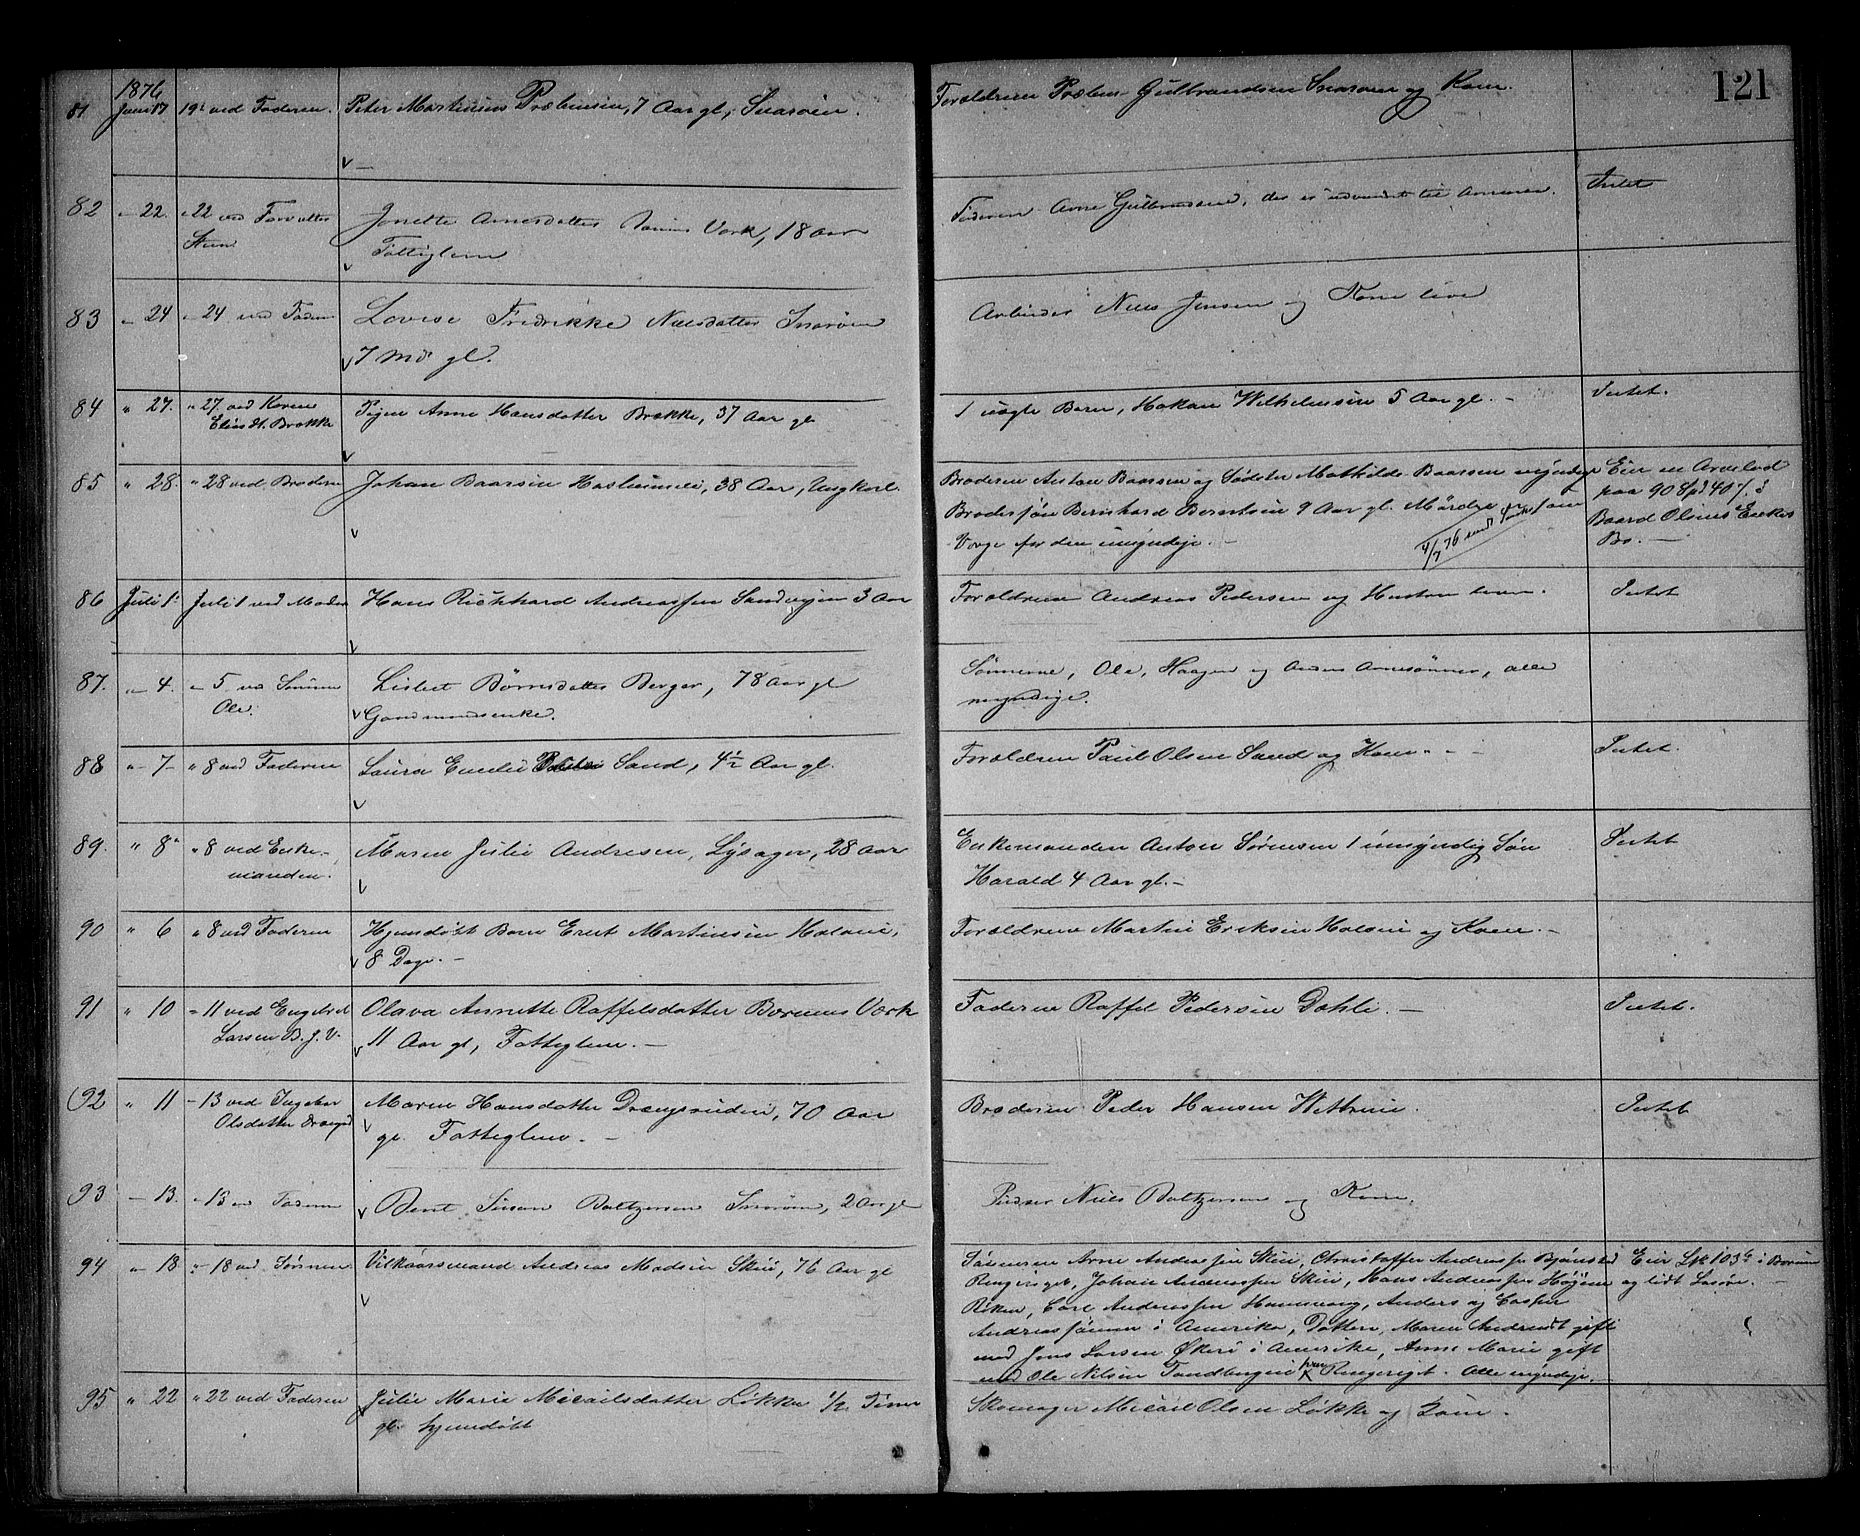 121
1876
81 Juni 17 19de ved Faderen. Peter Martinius Præbensen, 7 Aar gl, Snarøen. Forældrene Præben Gulbrandsen Snarøen og Kone.
82 " 22. " 22 ved Forvalter Jonette Arnesdatter Værk, 18 Aar Faderen Arne Gulbrandsen, der er udvandret til Amerika. Intet
Fattiglem
83 " 24 " 24 ved Faderen Lovise Fredrikke Nielsdatter Snarøen Arbeider Niels Jensen og Kone lever
7 Md gl.
84 " 27. " 27 ved Konen Pigen Anne Hansdatter Brække, 37 Aar gl 1 uægte Barn, Hakan Wilhelmsen 5 Aar gl. - Intet.
Elias H. Brække
85 " 28. " 28 ved Broderen Johan Baarsen Haslumsei, 38 Aar, Ungkarl. Broderen Anton Baarsen og Søster Mathilde Baarsen myndige Eier en Arvelod
Brodersøn Bernhard Berntsen 9 Aar gl. paa 90 Spd 40 / i
Værge for den umyndige. - 4/7 76 Baard Olsens Enkes
Bo. -
86 Juli 1. Juli 1 ved Moder Hans Richhard Andreassen Sandvigen 3 Aar Forældrene Andreas Pedersen og Hustru lever. Intet
87. " 4. " 5 ved Sønnen Lisbet Børresdatter Berger, 78 Aar gl Sønnerne, Ole, Haagen og Anders Arnesønner, alle
Ole. Gaardmandsenke. myndige.
88 " 7 " 8 ved Faderen Laura Emilie Sand, 4½ Aar gl. Forældrene Paul Olsen Sand og Kone - - Intet.
89. " 8 " 8 ved Enke- Maren Julie Andresen, Lysager, 28 Aar Enkemanden Anton Sørensen 1 umyndig Søn Intet
manden. Harald 4 Aar gl. -
90 " 6 " 8 ved Faderen Hjemdøbt Barn Ernt Martinsen Forældrene Martin Eriksen og Kone. -
8 Dage. -
91 " 10 " 11 ved Engebret Olava Annette Raffelsdatter Bærums Værk Faderen Raffel Pedersen Dahli. - Intet.
Larsen B. J. V. 11 Aar gl, Fattiglem. -
92 " 11 - 13 ved Ingebor Maren Hansdatter Drengsruden, 70 Aar Broderen Peder Hansen Wettrein. Intet
Olsdatter gl. Fattiglem. -
93 - 13. - 13 ved Faderen Bernt Baltzersen Snarøen, 2 Aar gl Niels Baltzersen og Kone.
94 " 18 " 18 ved Sønnen Vilkaarsmand Andreas Madsen Skui, 76 Aar gl Sønnerne Arne Andreassen Skui, Christoffer Andreassen Bjønstad Eier Spd 103 i Bærum
Ringeriget, Johan Andreassen Skui, Hans Andreassen og lidt Løsøre. -
Carl Andreassen Hamnvang, Anders og Casper
Andreassønner i Amerika, Datter, Maren Andreasdt gift
med Jens Larsen Økeri i Amerika, Anne Marie gift
med Ole Nilsen Tandbergeie paa Ringeriget. Alle myndige.
95 " 22 " 22 ved Faderen Julie Marie Micailsdatter Løkke 1/2 Time Skomager Micael Olsen Løkke og Kone.
gl. hjemdøbt